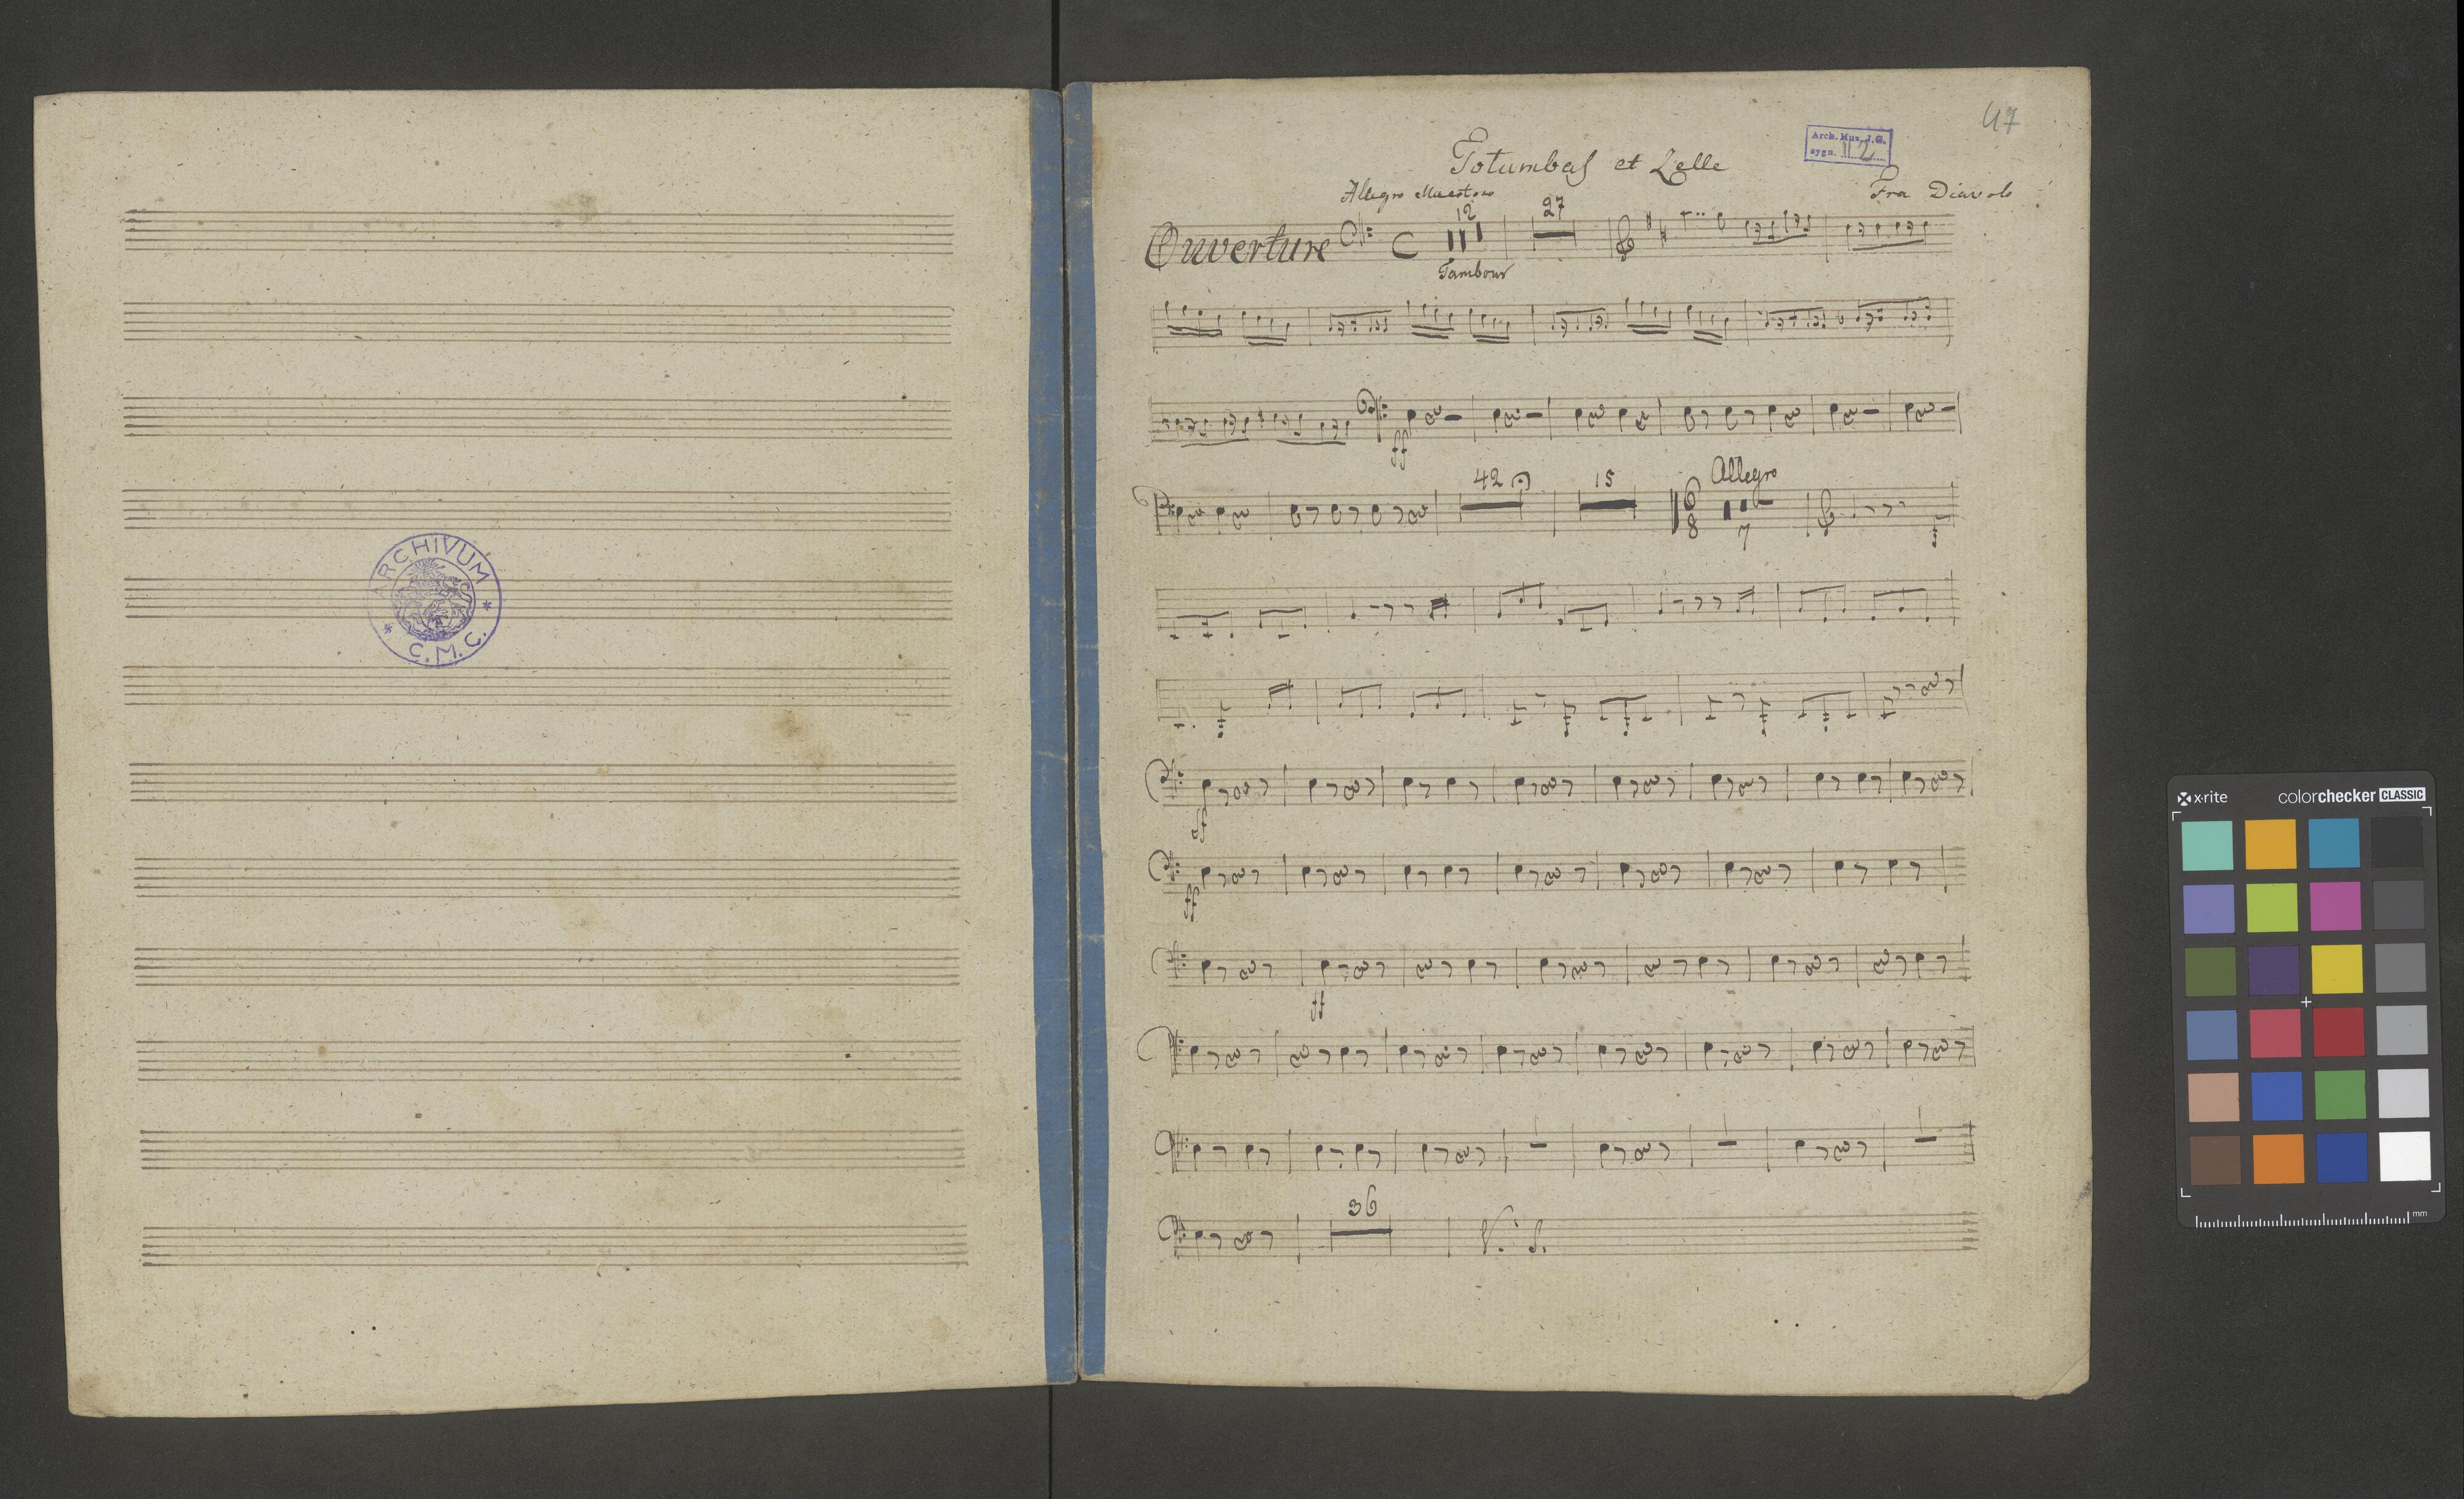 ARCHIVUM
* C.M.C. *
47
Arch. Mus. J.G.
sygn. II 2
Totumbas et Zelle
Allegro Maestoso
Fra Diavolo
12
27
Ouverture
Tambour
ff
42
15
Allegro
6
8
7
ff
ff
ff
36
V. S.
x·rite colorchecker CLASSIC
mm